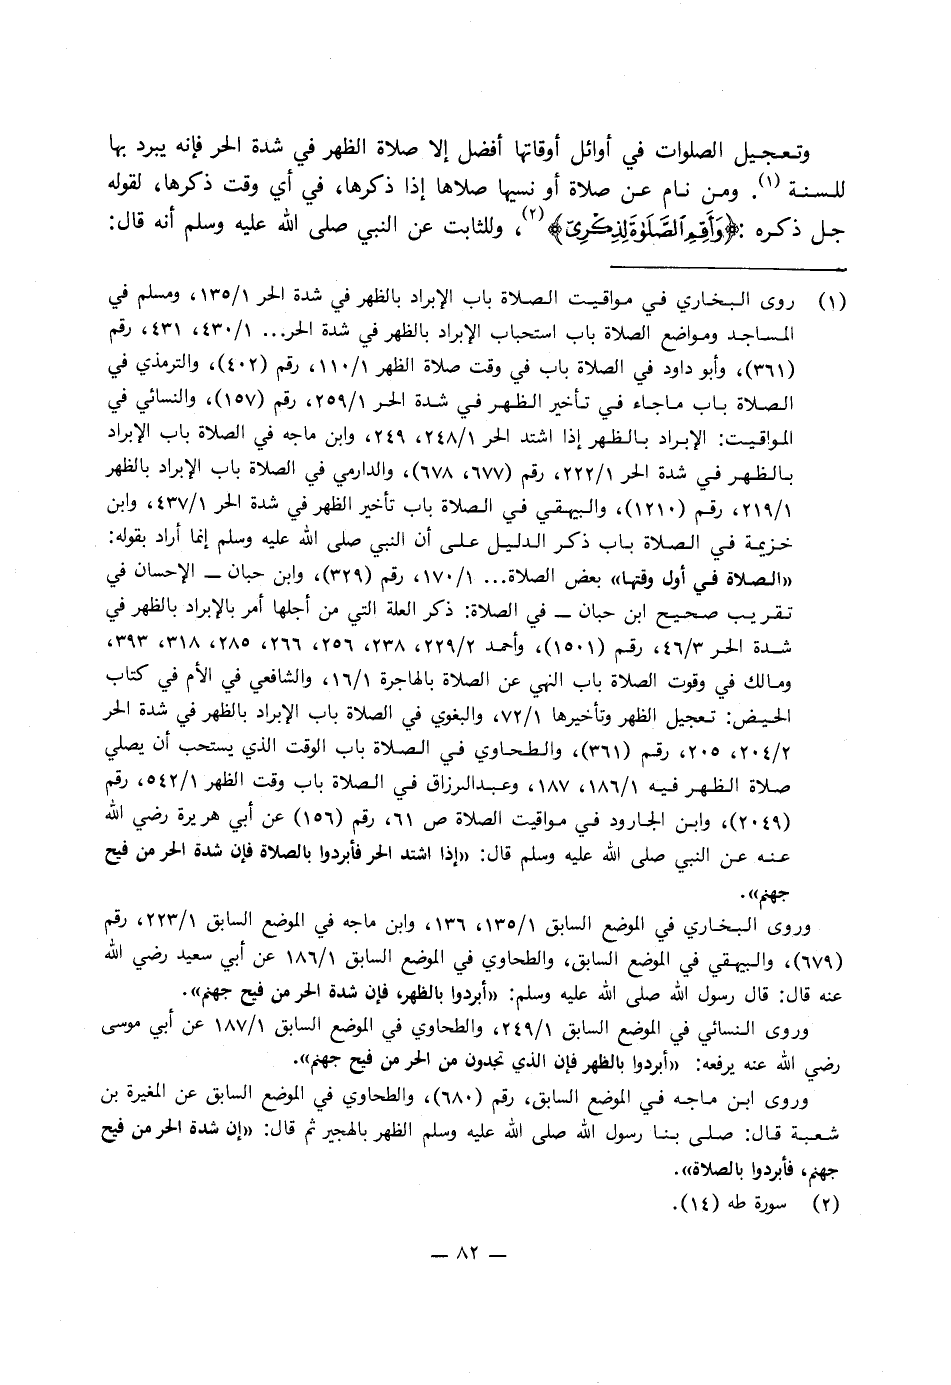 وتعجيل الصلوات في أوائل أوقاتها أفضل إلا صلاة الظهر في شدة الحر فإنه يبرد بها
للسنة (١). ومن نام عن صلاة أو نسيها صلاها إذا ذكرها، في أي وقت ذكرها، لقوله
جل ذكره : ﴿وَأَقِمِ ٱلصَّلَوٰةَ لِذِكْرِىٓ﴾ (٢)، وللثابت عن النبي صلى الله عليه وسلم أنه قال:
(١) روى البخاري في مواقيت الصلاة باب الإبراد بالظهر في شدة الحر ١٣٥/١، ومسلم في
المساجد ومواضع الصلاة باب استحباب الإبراد بالظهر في شدة الحر... ٤٣٠/١، ٤٣١، رقم
(٣٦١)، وأبو داود في الصلاة باب في وقت صلاة الظهر ١١٠/١، رقم (٤٠٢)، والترمذي في
الصلاة باب ماجاء في تأخير الظهر في شدة الحر ٢٥٩/١، رقم (١٥٧)، والنسائي في
المواقيت: الإبراد بالظهر إذا اشتد الحر ٢٤٨/١، ٢٤٩، وابن ماجه في الصلاة باب الإبراد
بالظهر في شدة الحر ٢٢٢/١، رقم (٦٧٧، ٦٧٨)، والدارمي في الصلاة باب الإبراد بالظهر
٢١٩/١، رقم (١٢١٠)، والبيهقي في الصلاة باب تأخير الظهر في شدة الحر ٤٣٧/١، وابن
خزيمة في الصلاة باب ذكر الدليل على أن النبي صلى الله عليه وسلم إنما أراد بقوله:
«الصلاة في أول وقتها» بعض الصلاة... ١٧٠/١، رقم (٣٢٩)، وابن حبان ــ الإحسان في
تقريب صحيح ابن حبان ــ في الصلاة: ذكر العلة التي من أجلها أمر بالإبراد بالظهر في
شدة الحر ٤٦/٣، رقم (١٥٠١)، وأحمد ٢٢٩/٢، ٢٣٨، ٢٥٦، ٢٦٦، ٢٨٥، ٣١٨، ٣٩٣،
ومالك في وقوت الصلاة باب النهي عن الصلاة بالهاجرة ١٦/١، والشافعي في الأم في كتاب
الحيض: تعجيل الظهر وتأخيرها ٧٢/١، والبغوي في الصلاة باب الإبراد بالظهر في شدة الحر
٢٠٤/٢، ٢٠٥، رقم (٣٦١)، والطحاوي في الصلاة باب الوقت الذي يستحب أن يصلي
صلاة الظهر فيه ١٨٦/١، ١٨٧، وعبدالرزاق في الصلاة باب وقت الظهر ٥٤٢/١، رقم
(٢٠٤٩)، وابن الجارود في مواقيت الصلاة ص ٦١، رقم (١٥٦) عن أبي هريرة رضي الله
عنه عن النبي صلى الله عليه وسلم قال: «إذا اشتد الحر فأبردوا بالصلاة فإن شدة الحر من فيح
جهنم».
وروى البخاري في الموضع السابق ١٣٥/١، ١٣٦، وابن ماجه في الموضع السابق ٢٢٣/١، رقم
(٦٧٩)، والبيهقي في الموضع السابق، والطحاوي في الموضع السابق ١٨٦/١ عن أبي سعيد رضي الله
عنه قال: قال رسول الله صلى الله عليه وسلم: «أبردوا بالظهر، فإن شدة الحر من فيح جهنم».
وروى النسائي في الموضع السابق ٢٤٩/١، والطحاوي في الموضع السابق ١٨٧/١ عن أبي موسى
رضي الله عنه يرفعه: «أبردوا بالظهر فإن الذي تجدون من الحر من فيح جهنم».
وروى ابن ماجه في الموضع السابق، رقم (٦٨٠)، والطحاوي في الموضع السابق عن المغيرة بن
شعبة قال: صلى بنا رسول الله صلى الله عليه وسلم الظهر بالهجير ثم قال: «إن شدة الحر من فيح
جهنم، فأبردوا بالصلاة».
(٢) سورة طه (١٤).
— ٨٢ —